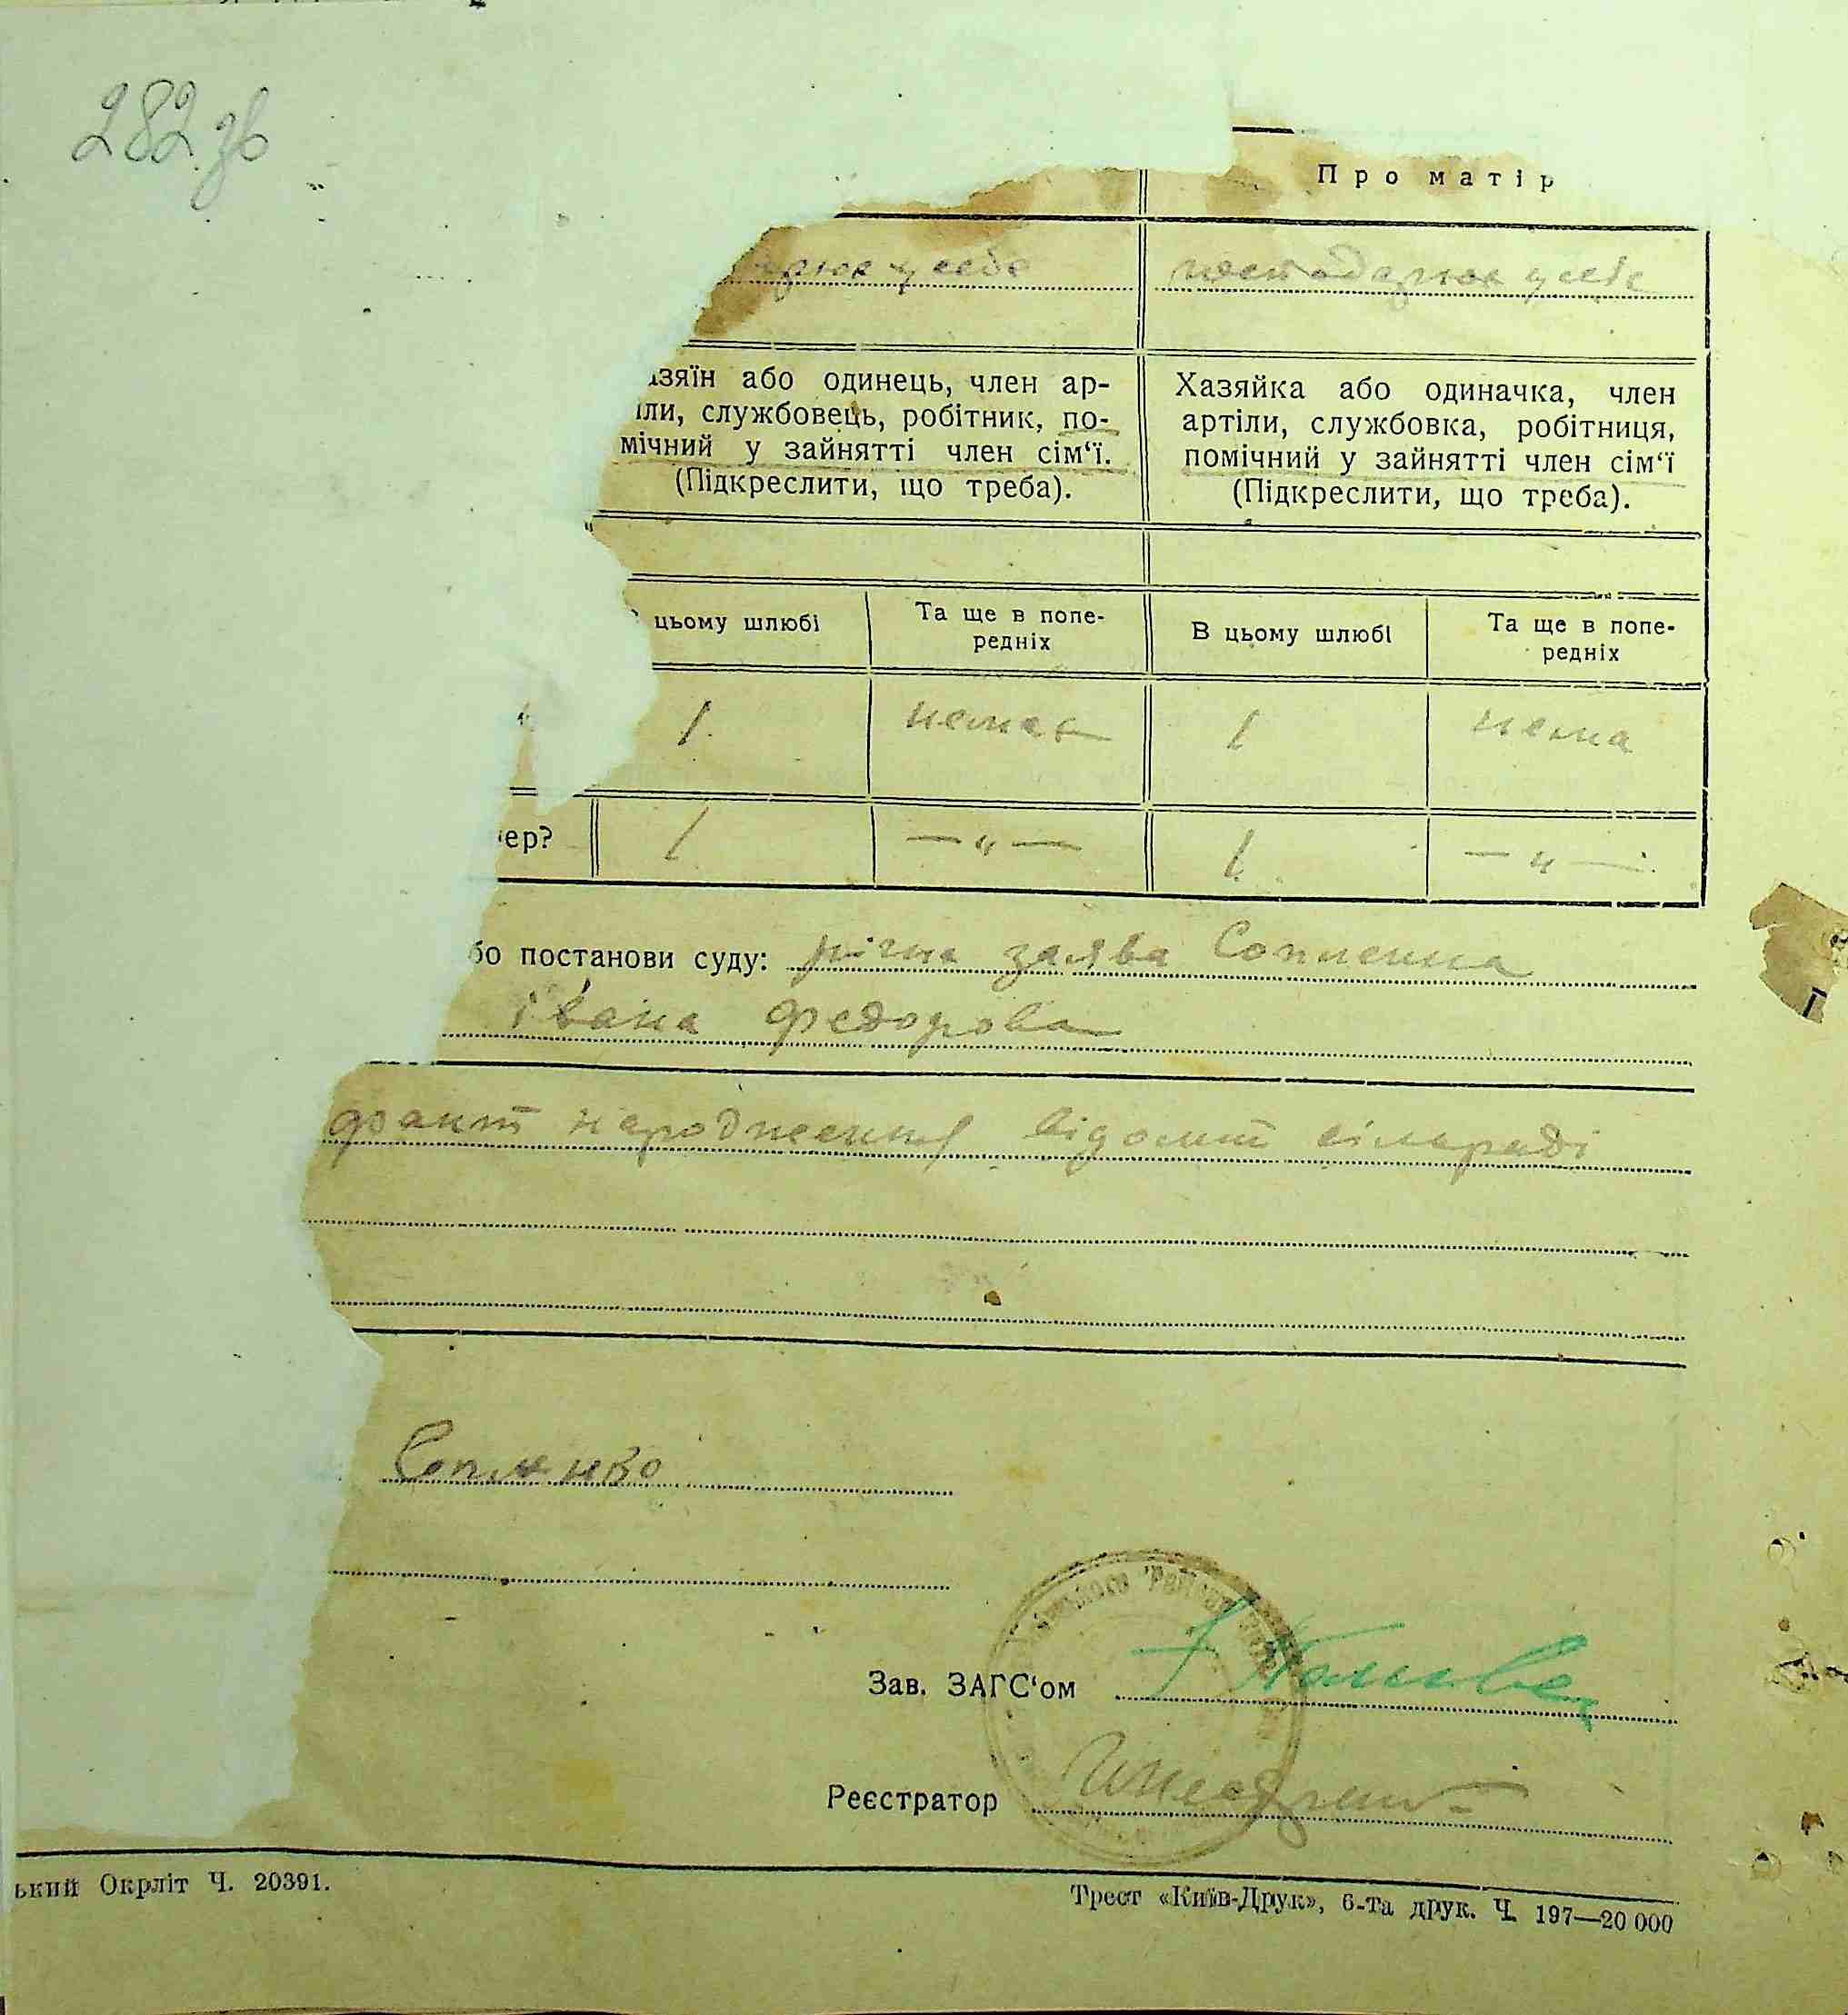 282 зв
Про матір
господарює у себе
азяїн або одинець, член ар-
іли, службовець, робітник, по-
мічний у зайнятті член сім‘ї.
(Підкреслити, що треба).
Хазяйка або одиначка, член
артіли, службовка, робітниця,
помічний у зайнятті член сім‘ї
(Підкреслити, що треба).
цьому шлюбі
Та ще в попе-
редніх
В цьому шлюбі
Та ще в попе-
редніх
1 немає 1 нема
ер? 1 — „ — 1 — „ —
бо постанови суду: річна заява
івана федорова
факт народження відомий сільраді
Зав. ЗАГС‘ом
Реєстратор
ький Окрліт Ч. 20391.
Трест «Київ-Друк», 6-та друк. Ч. 197—20 000